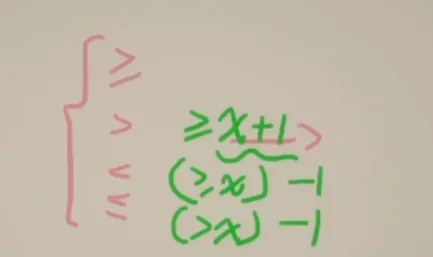 ≥
> ≥ x+1 >
< (≥x) -1
≤ (>x) -1